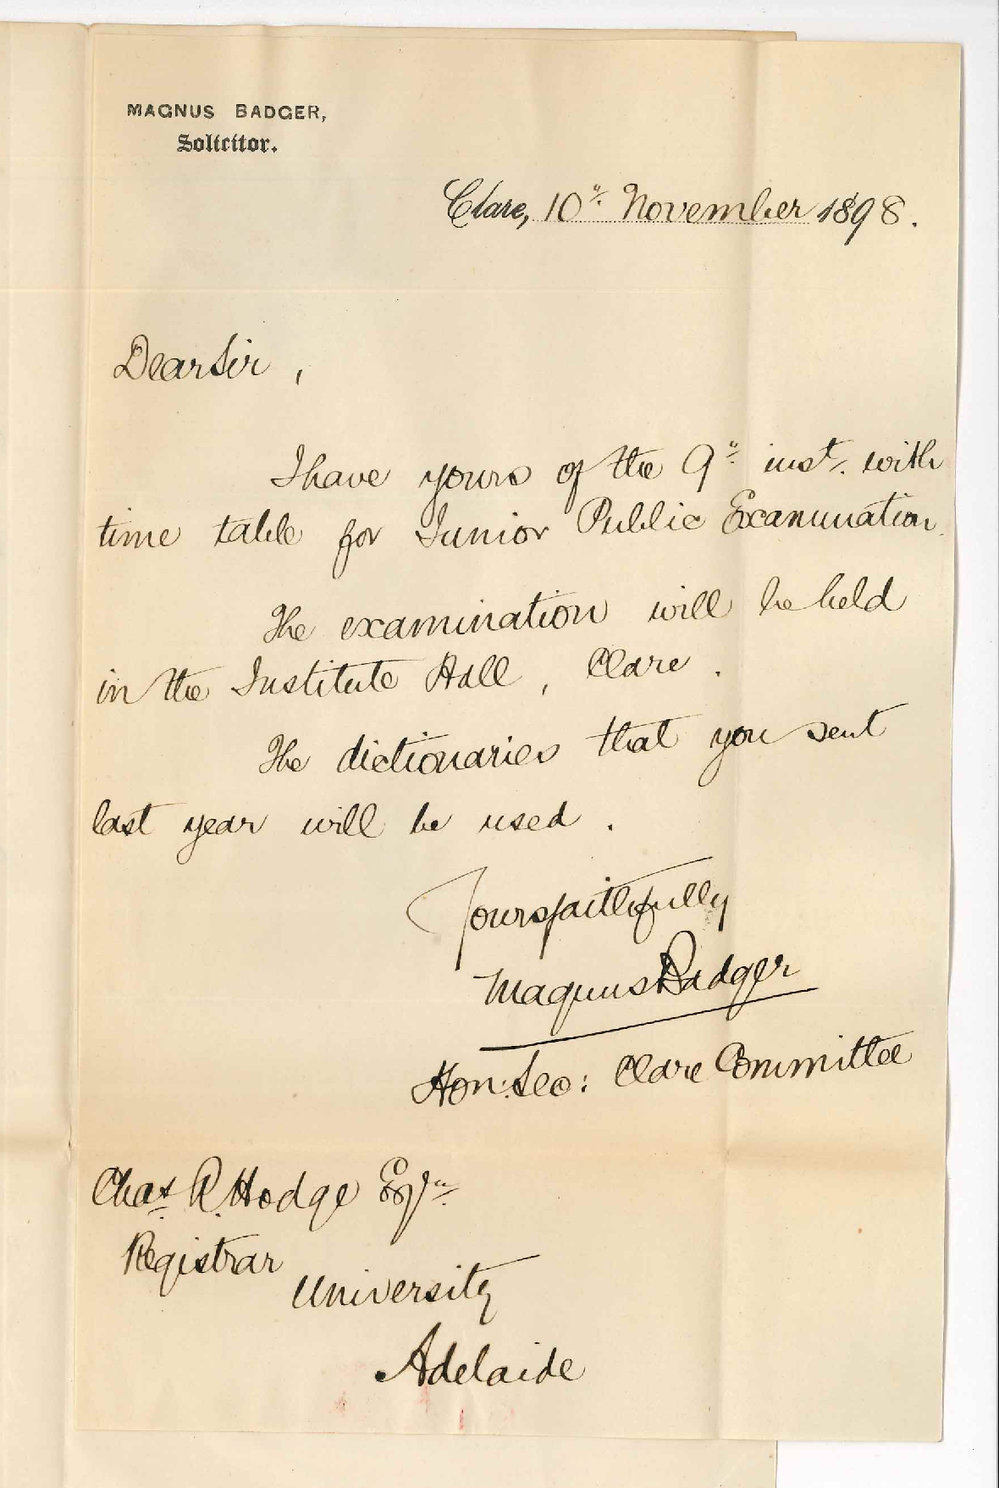 MAGNUS BADGER,
Solicitor.
Clare, 10" November 1898.
Dear Sir,
I have yours of the 9" inst. with
time table for Junior Public Examination.
The examination will be held
in the Institute Hall, Clare.
The dictionaries that you sent
last year will be used.
Yours faithfully
Magnus Badger
Hon: Sec: Clare Committee
Chas. R. Hodge Esqre
Registrar
University
Adelaide